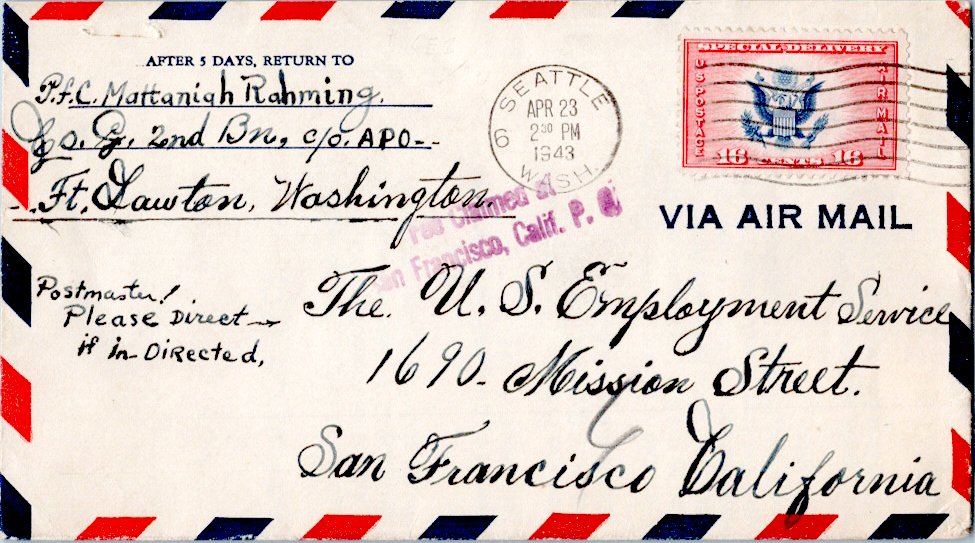 AFTER 5 DAYS, RETURN TO
P.f.C. Mattanigh Rahming.
Co. G, 2nd Bn, c/o. APO--
Ft. Lawton, Washington.
SEATTLE
APR 23
2 30 PM
1943
WASH.
6
SPECIAL DELIVERY
US POSTAGE
AIR MAIL
16 CENTS 16
VIA AIR MAIL
Fee Claimed at
San Francisco, Calif. P. O.
Postmaster!
Please Direct
if in-Directed.
The. U. S. Employment Service
1690- Mission Street.
San Francisco California